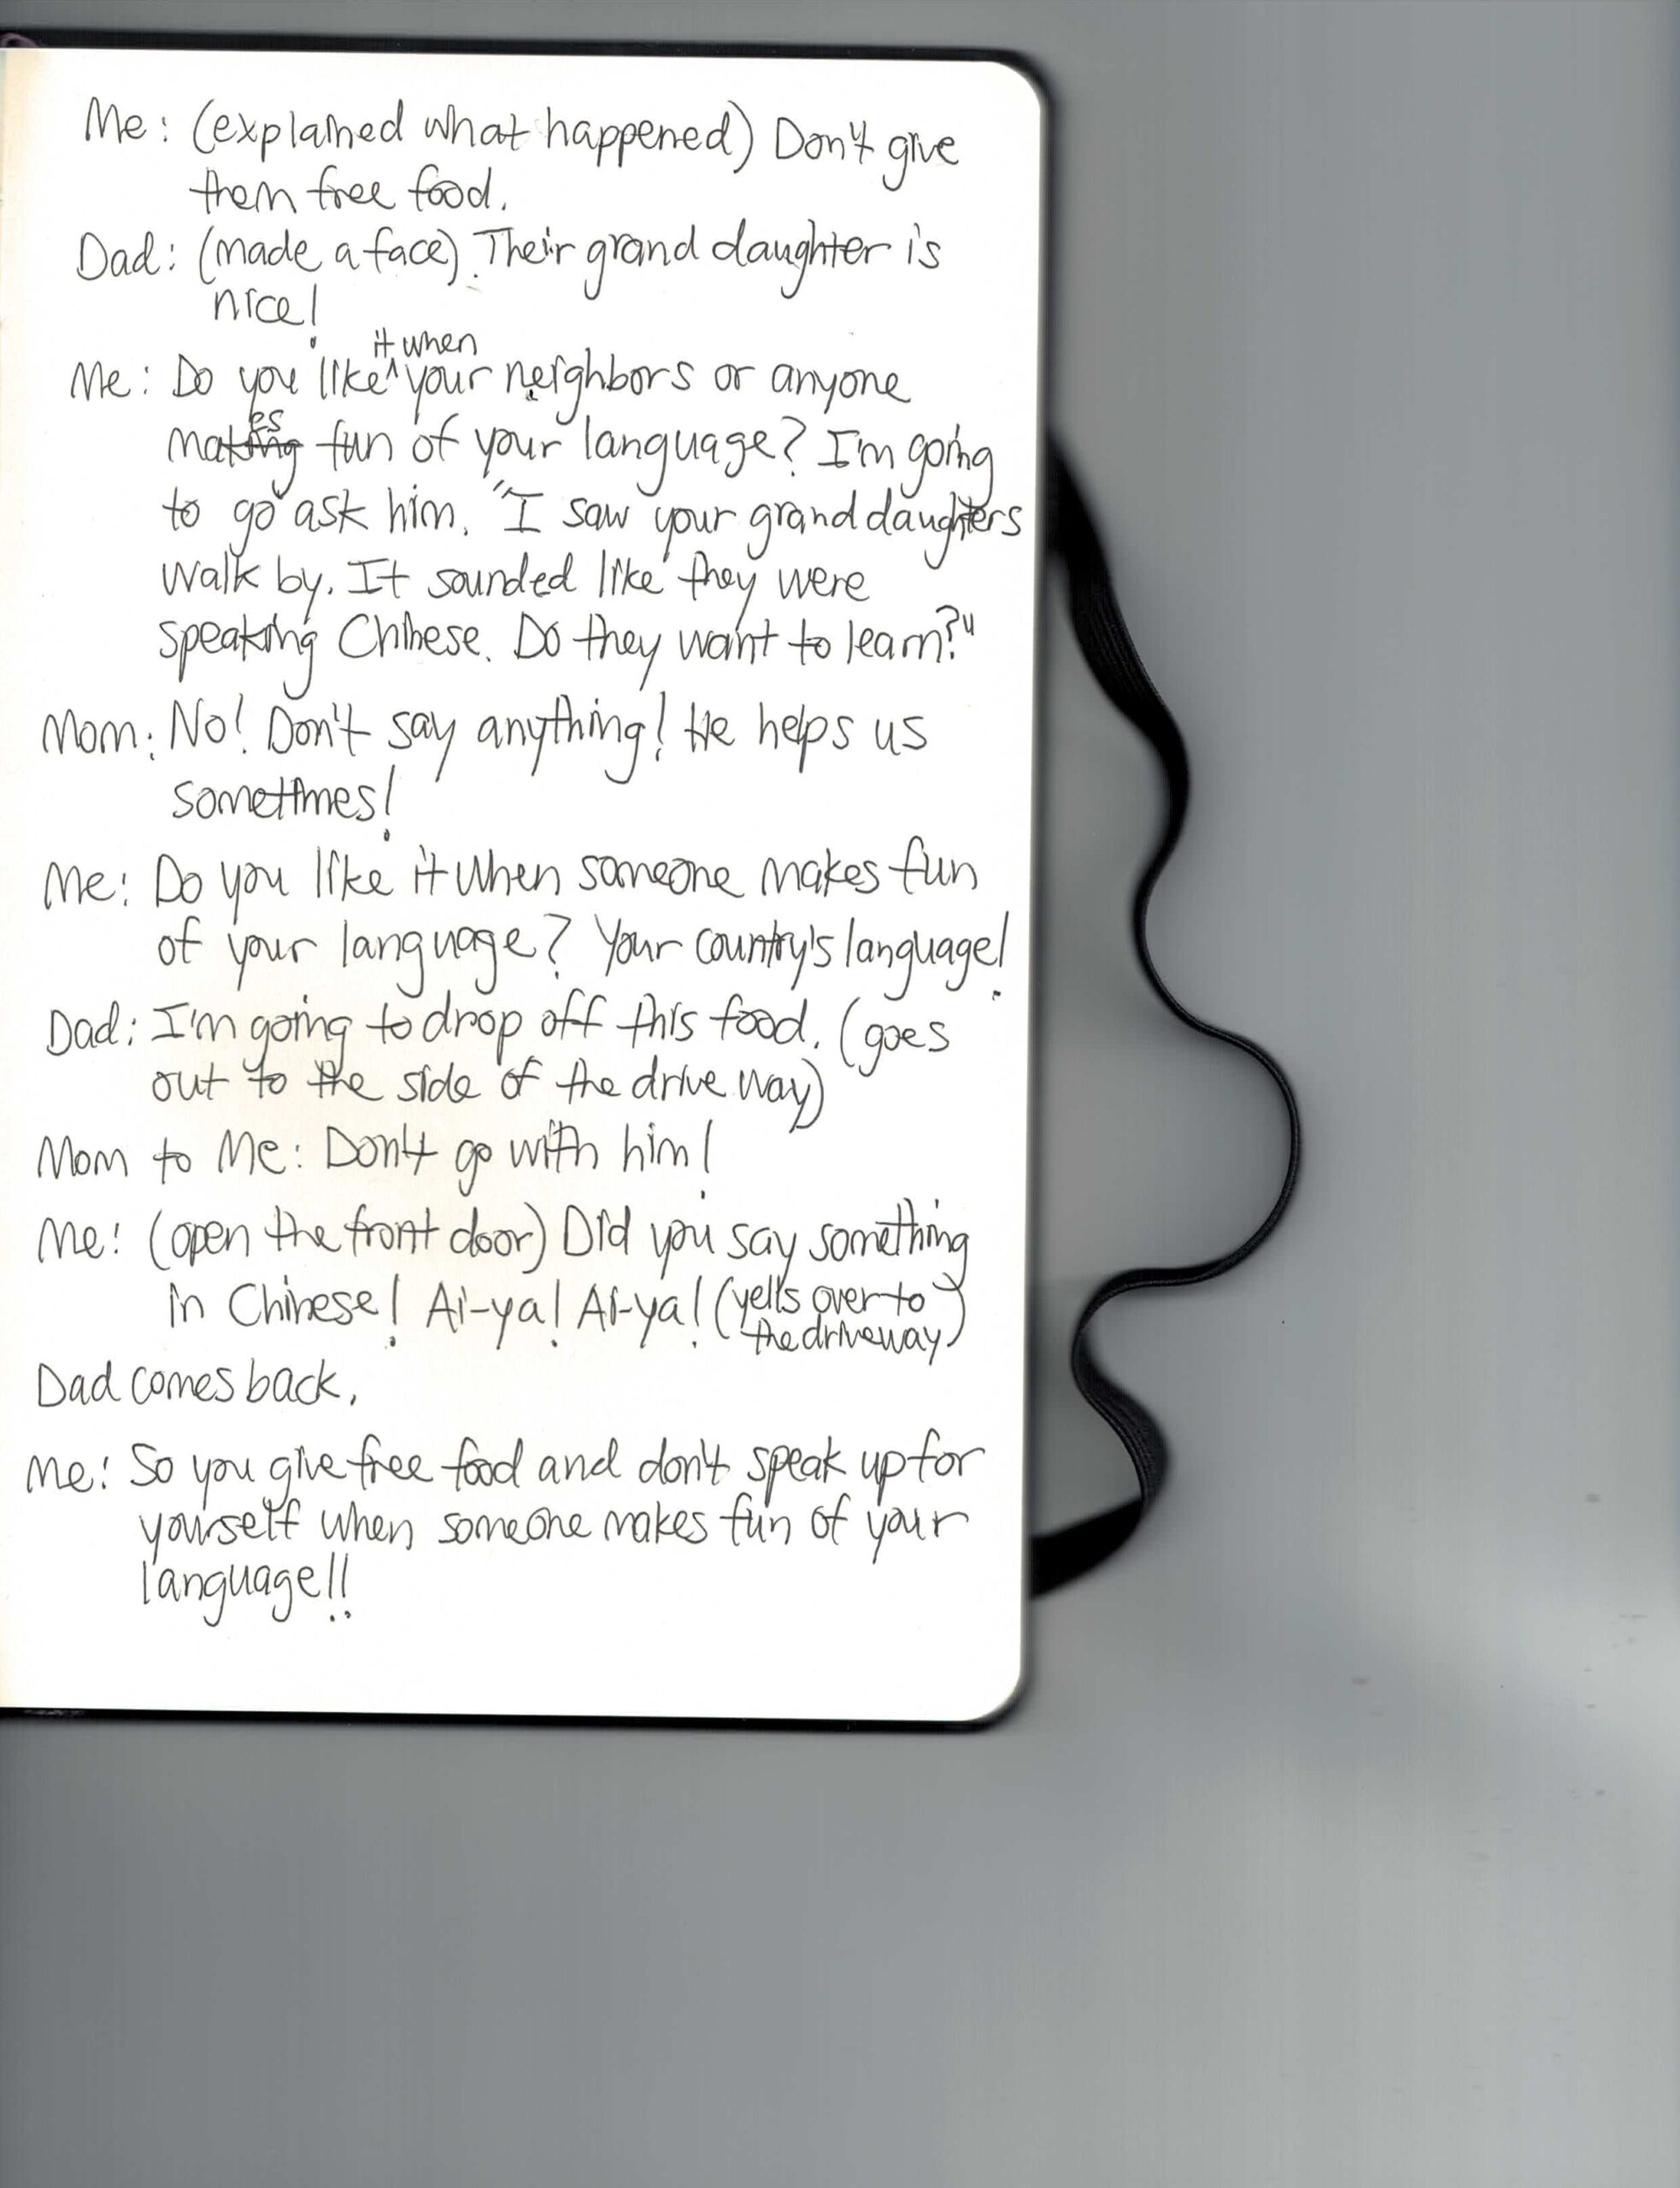 Me: (explained what happened) Don't give
them free food.
Dad: (made a face). Their grand daughter is
nice!
Me: Do you like it when your neighbors or anyone
makes fun of your language? I'm going
to go ask him. "I saw your grand daughters
walk by. It sounded like they were
speaking Chinese. Do they want to learn?"
Mom: No! Don't say anything! He helps us
sometimes!
Me: Do you like it when someone makes fun
of your language? Your country's language!
Dad: I'm going to drop off this food. (goes
out to the side of the drive way)
Mom to Me: Don't go with him!
Me: (open the front door) Did you say something
in Chinese! Ai-ya! Ai-ya! (yells over to
the driveway)
Dad comes back.
Me: So you give free food and don't speak up for
yourself when someone makes fun of your
language!!